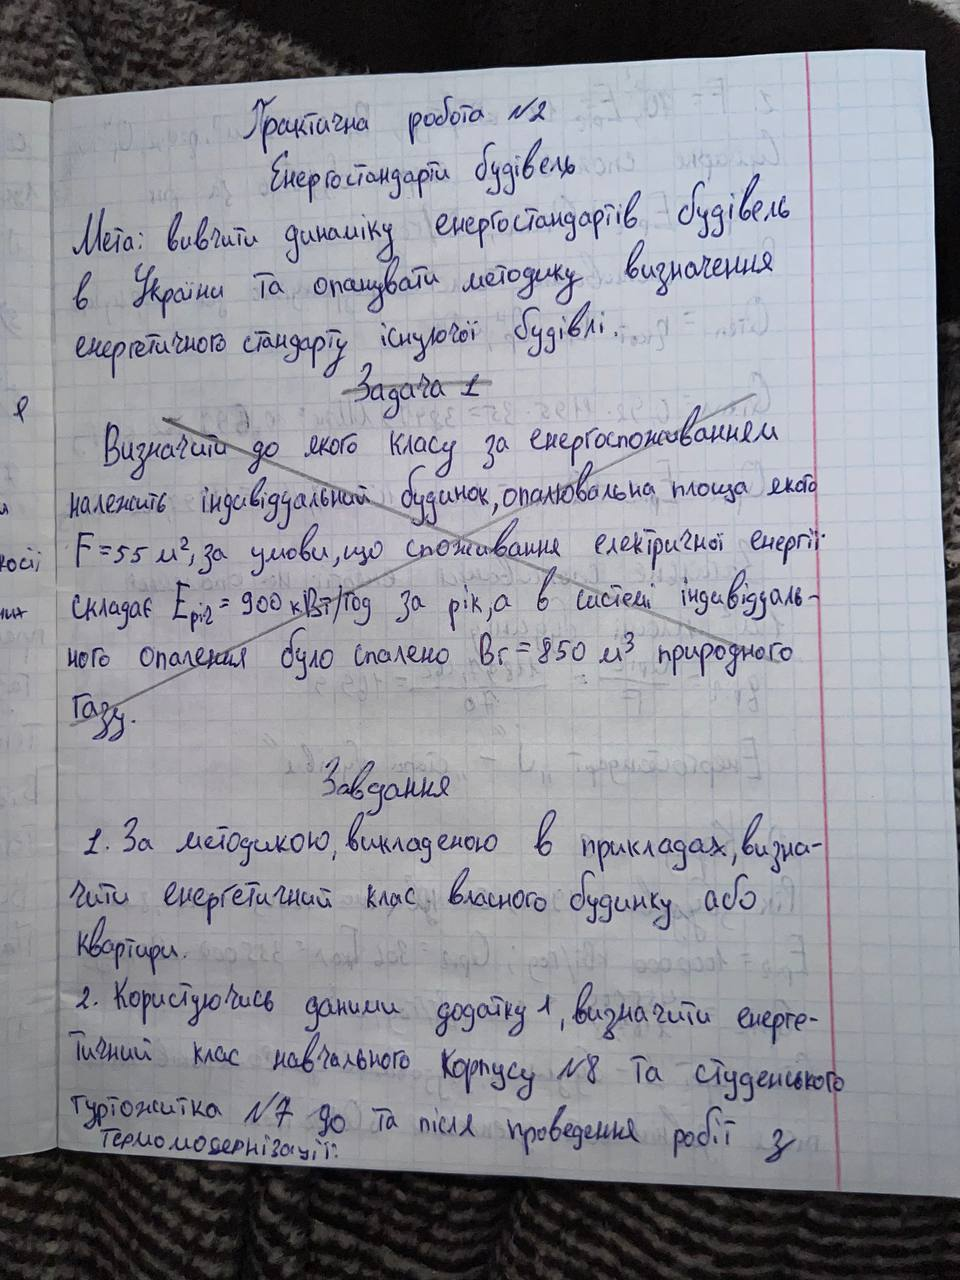 Практична робота №2
Енергостандарти будівель
Мета: вивчити динаміку енергостандартів будівель
в України та опанувати методику визначення
енергетичного стандарту існуючої будівлі.
Задача 1
Визначити до якого класу за енергоспоживанням
належить індивідуальний будинок, опалювальна площа якого
F=55 м², за умови, що споживання електричної енергії
складає Eріг=900 кВт/год за рік, а в системі індивідуаль-
ного опалення було спалено Вг=850 м³ природного
газу.
Завдання
1. За методикою, викладеною в прикладах, визна-
чити енергетичний клас власного будинку або
квартири.
2. Користуючись даними додатку 1, визначити енерге-
тичний клас навчального корпусу №8 та студенського
гуртожитка №7 до та після проведення робіт з
термомодернізації: